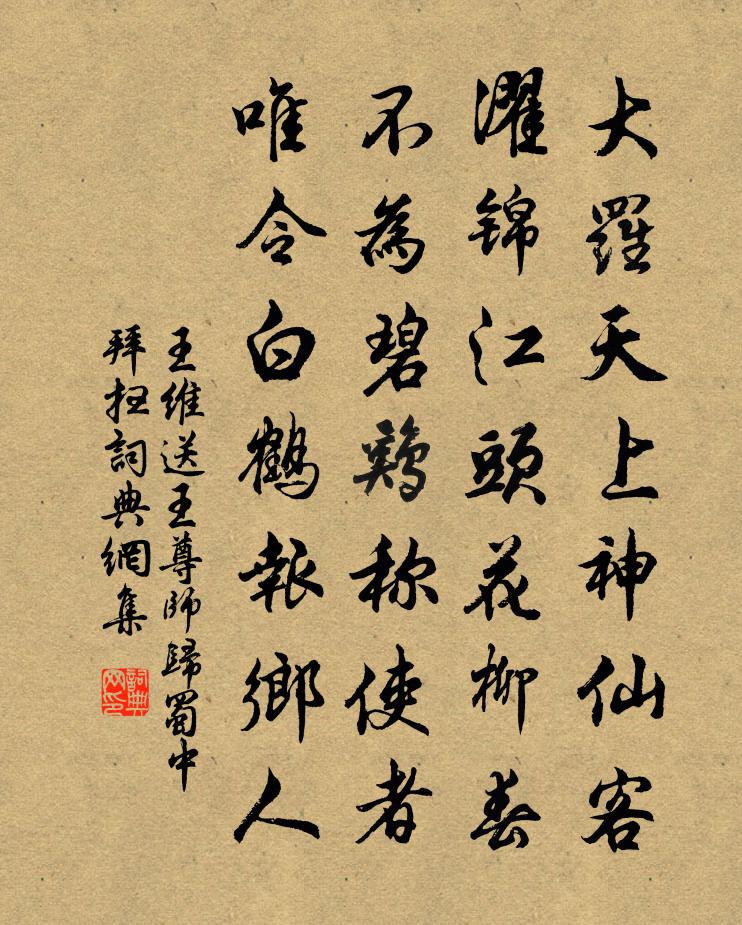 大羅天上神仙客
濯錦江頭花柳春
不為碧鷄称使者
唯令白鶴報鄉人
王維送王尊師歸蜀中
拜扭詞典網集
詞典网印